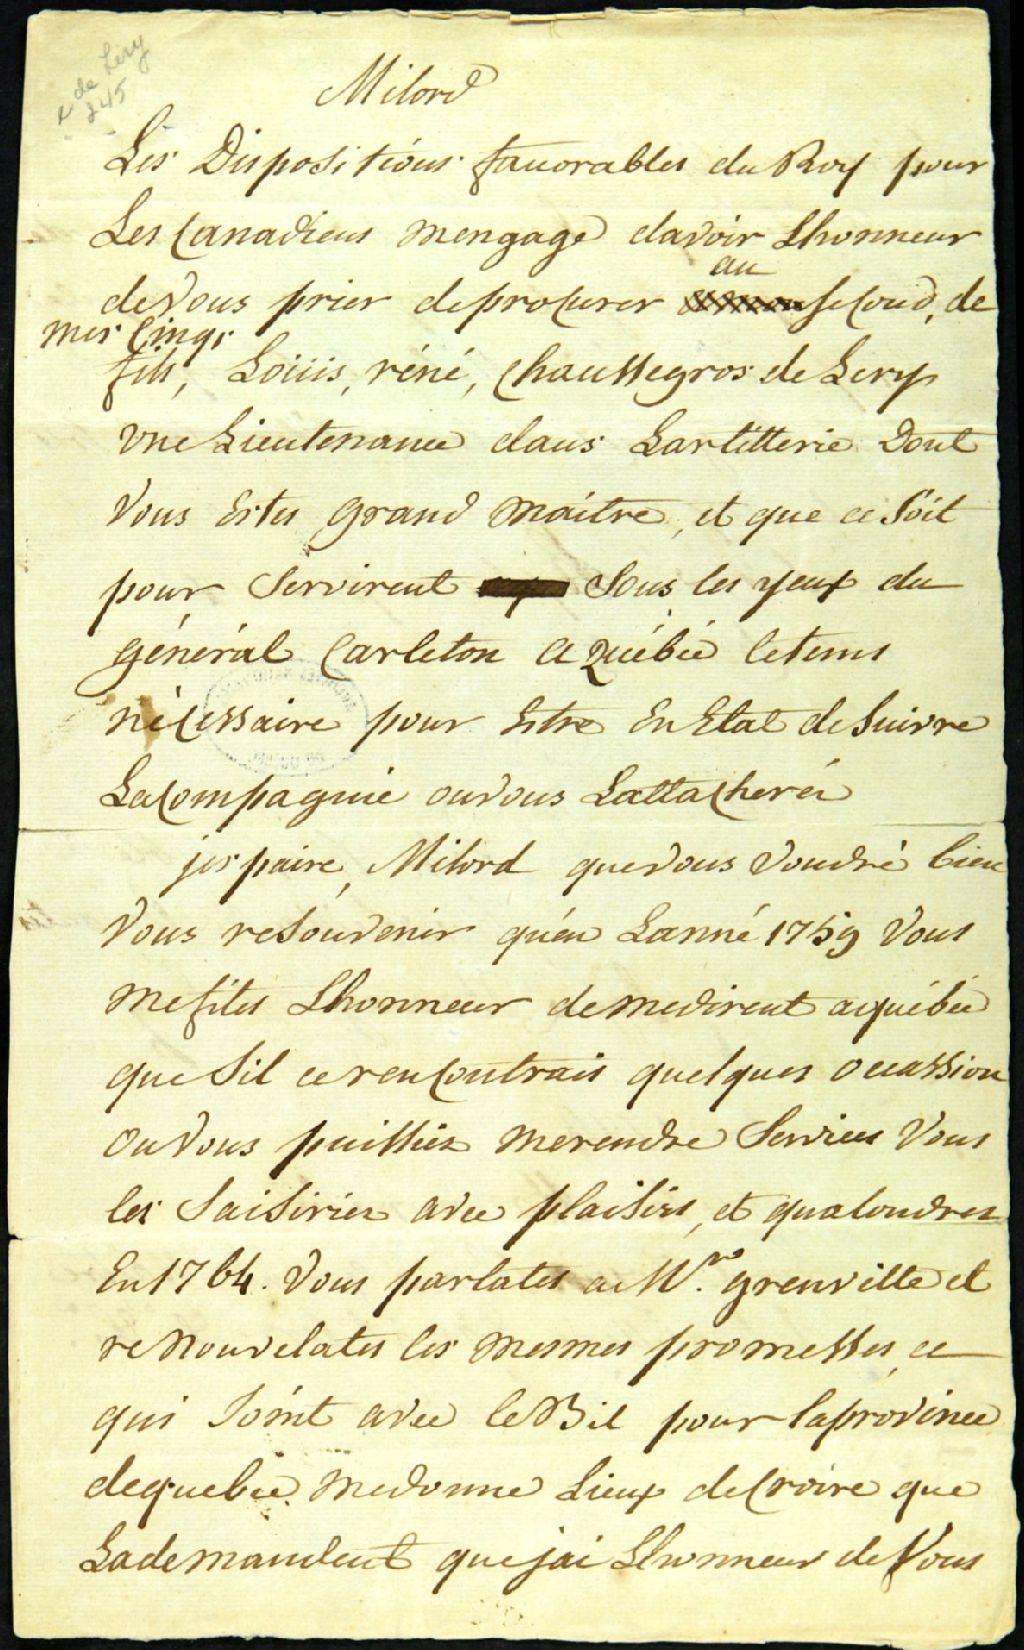 de Lery
245
Milord
Les Dispositions favorables du Roy pour
Les Canadiens mengage davoir Lhonneur
de vous prier de procurer au second, de
mes Cinqs
fils, Loüis, réné, Chaussegros de Lery
une Lieutenance dans Lartillerie Dont
Vous Estes grand Maitre, et que ce soit
pour Servirent Sous les yeux du
général Carleton a Québéc letems
nécessaire pour Estre En Etat de Suivre
LaCompagnie ou vous Lattacheréz
jespaire, Milord que vous voudré bien
Vous resouvenir quén Lanné 1759 Vous
me fites Lhonneur de medirent aquébéc
que Sil ce renContrais quelques occassion
Ou Vous puissiez merendre Services Vous
les Saisiriez avec plaisirs, et qualondres
En 1764. Vous parlates a Mr. grenville et
renouvelates les mesmes promesses, ce
qui Joint avec le Bil pour laprovince
dequebéc medonne Lieux deCroire que
Lademandent que jai Lhonneur de Vous